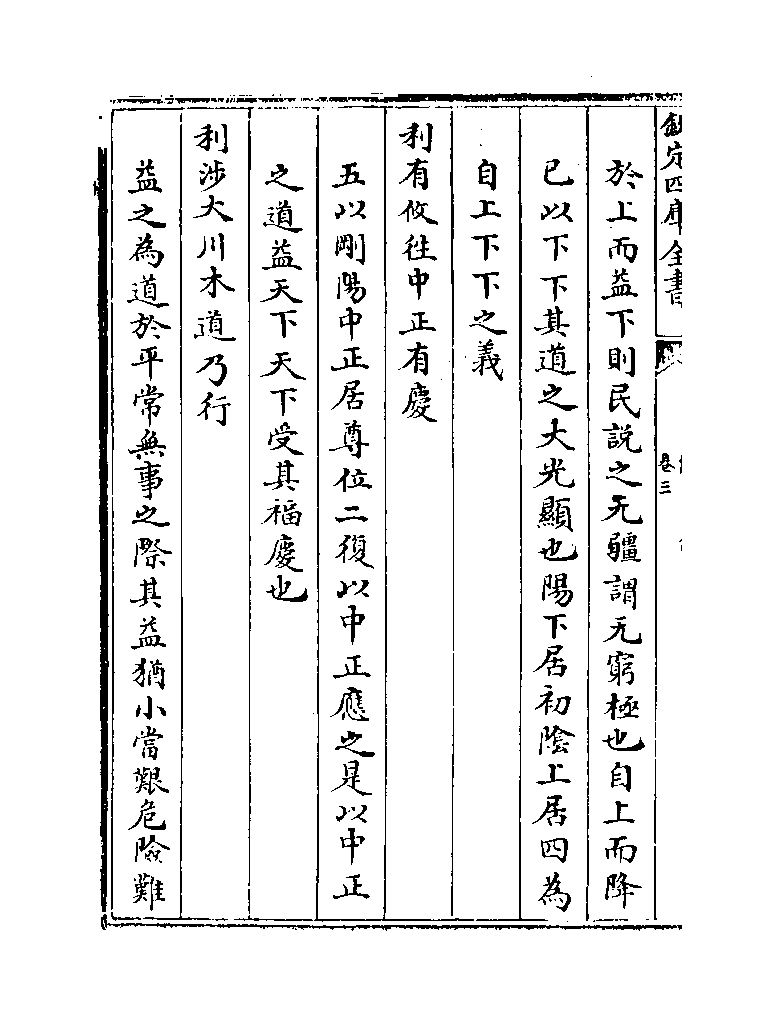 欽定四庫全書
卷三
於上而益下則民説之无疆謂无窮極也自上而降
已以下下其道之大光顯也陽下居初隂上居四為
自上下下之義
利有攸往中正有慶
五以剛陽中正居尊位二復以中正應之是以中正
之道益天下天下受其福慶也
利涉大川木道乃行
益之為道於平常無事之際其益猶小當艱危險難